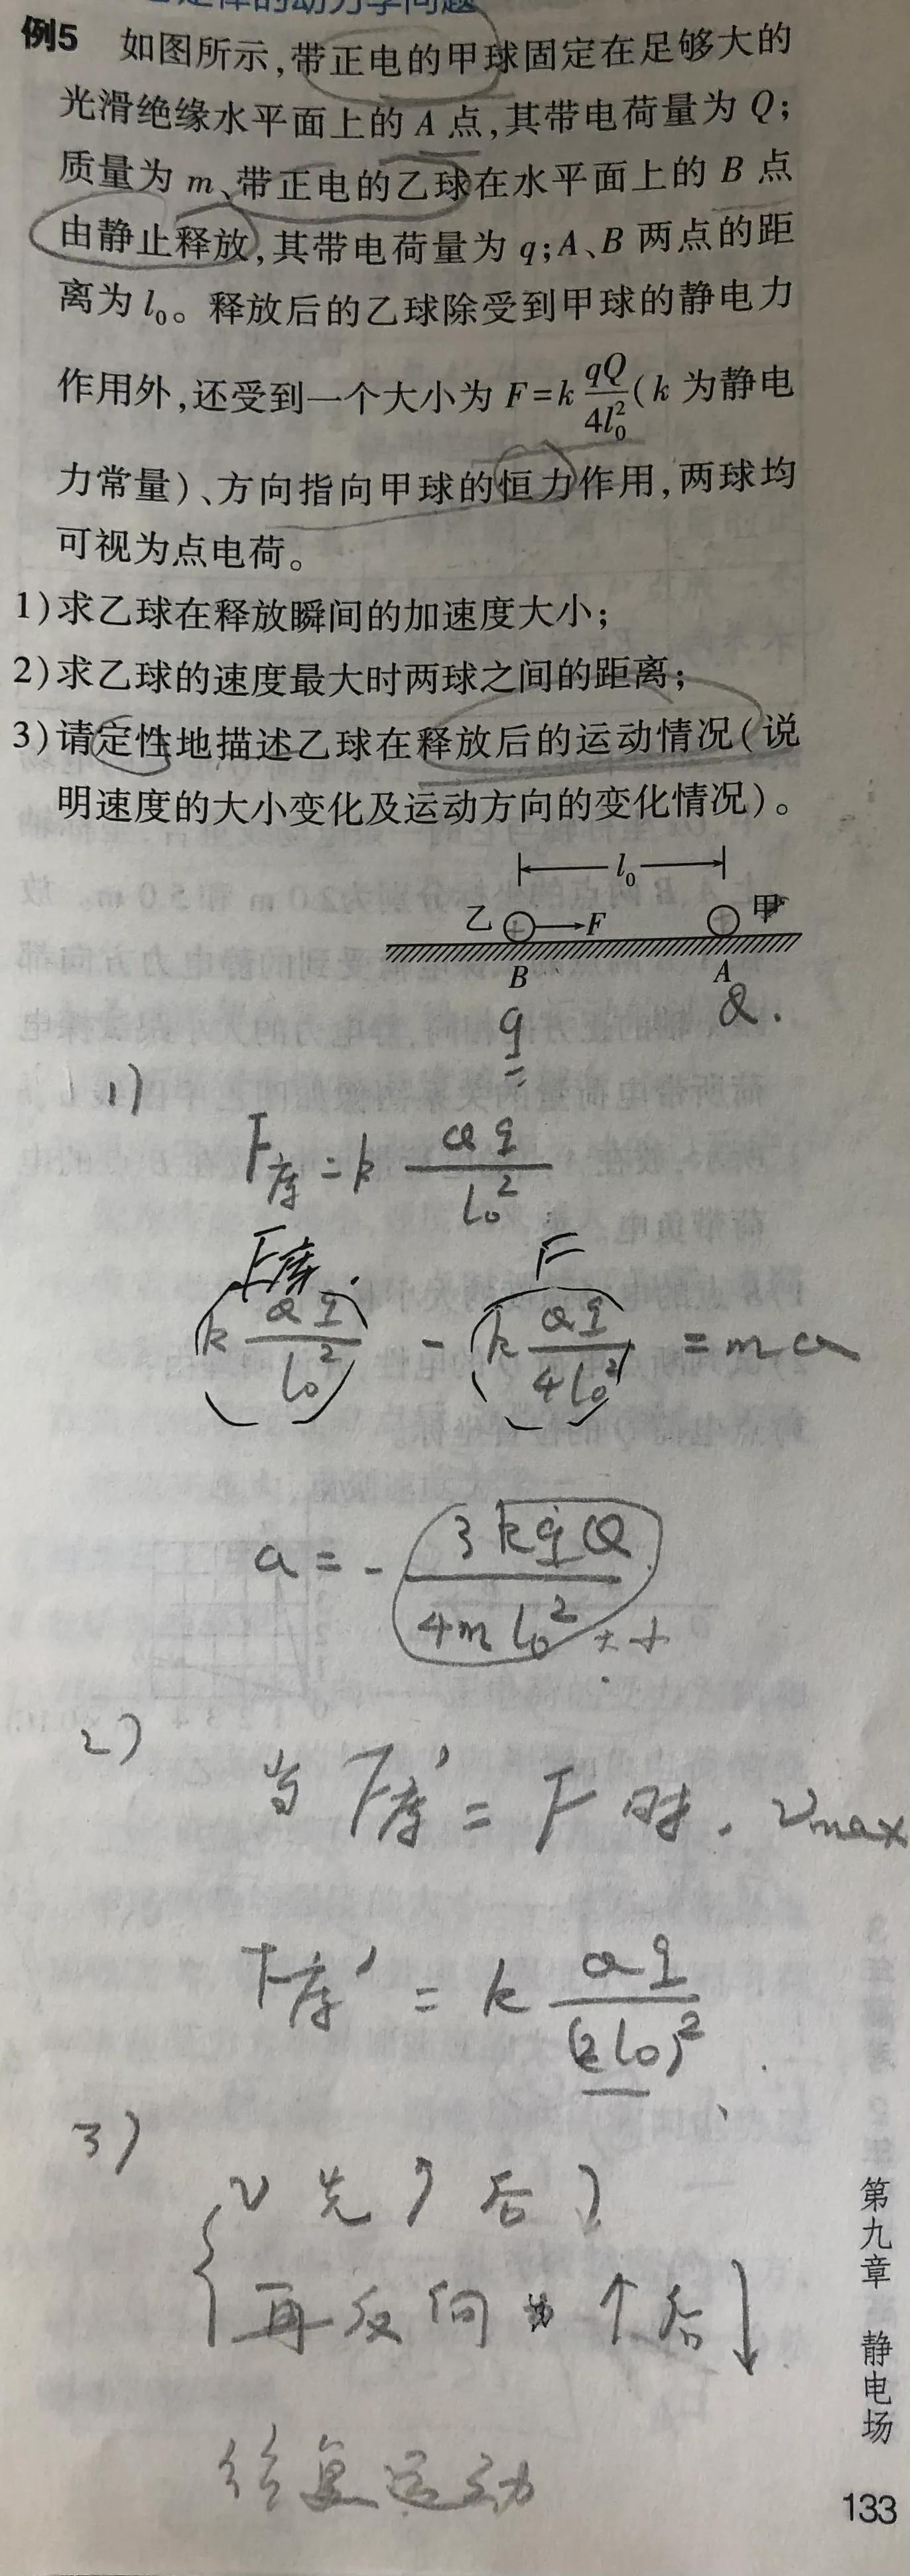 定律的动力学问题
例5 如图所示,带正电的甲球固定在足够大的
光滑绝缘水平面上的 A 点,其带电荷量为 Q;
质量为 m、带正电的乙球在水平面上的 B 点
由静止释放,其带电荷量为 q;A、B 两点的距
离为 l₀。释放后的乙球除受到甲球的静电力
作用外,还受到一个大小为 F=k qQ/4l₀² (k 为静电
力常量)、方向指向甲球的恒力作用,两球均
可视为点电荷。
1)求乙球在释放瞬间的加速度大小;
2)求乙球的速度最大时两球之间的距离;
3)请定性地描述乙球在释放后的运动情况(说
明速度的大小变化及运动方向的变化情况)。
l₀
乙 F 甲
B A
q Q.
1)
F库 = k Qq/l₀²
F库 F
k Qq/l₀² - k Qq/4l₀² = ma
a = - 3kqQ/4ml₀² 大小
2)
当 F库' = F 时. vmax
F库' = k Qq/(2l₀)²
3)
v 先↑后↓
再反向 ↑后↓
往复运动
第九章 静电场
133